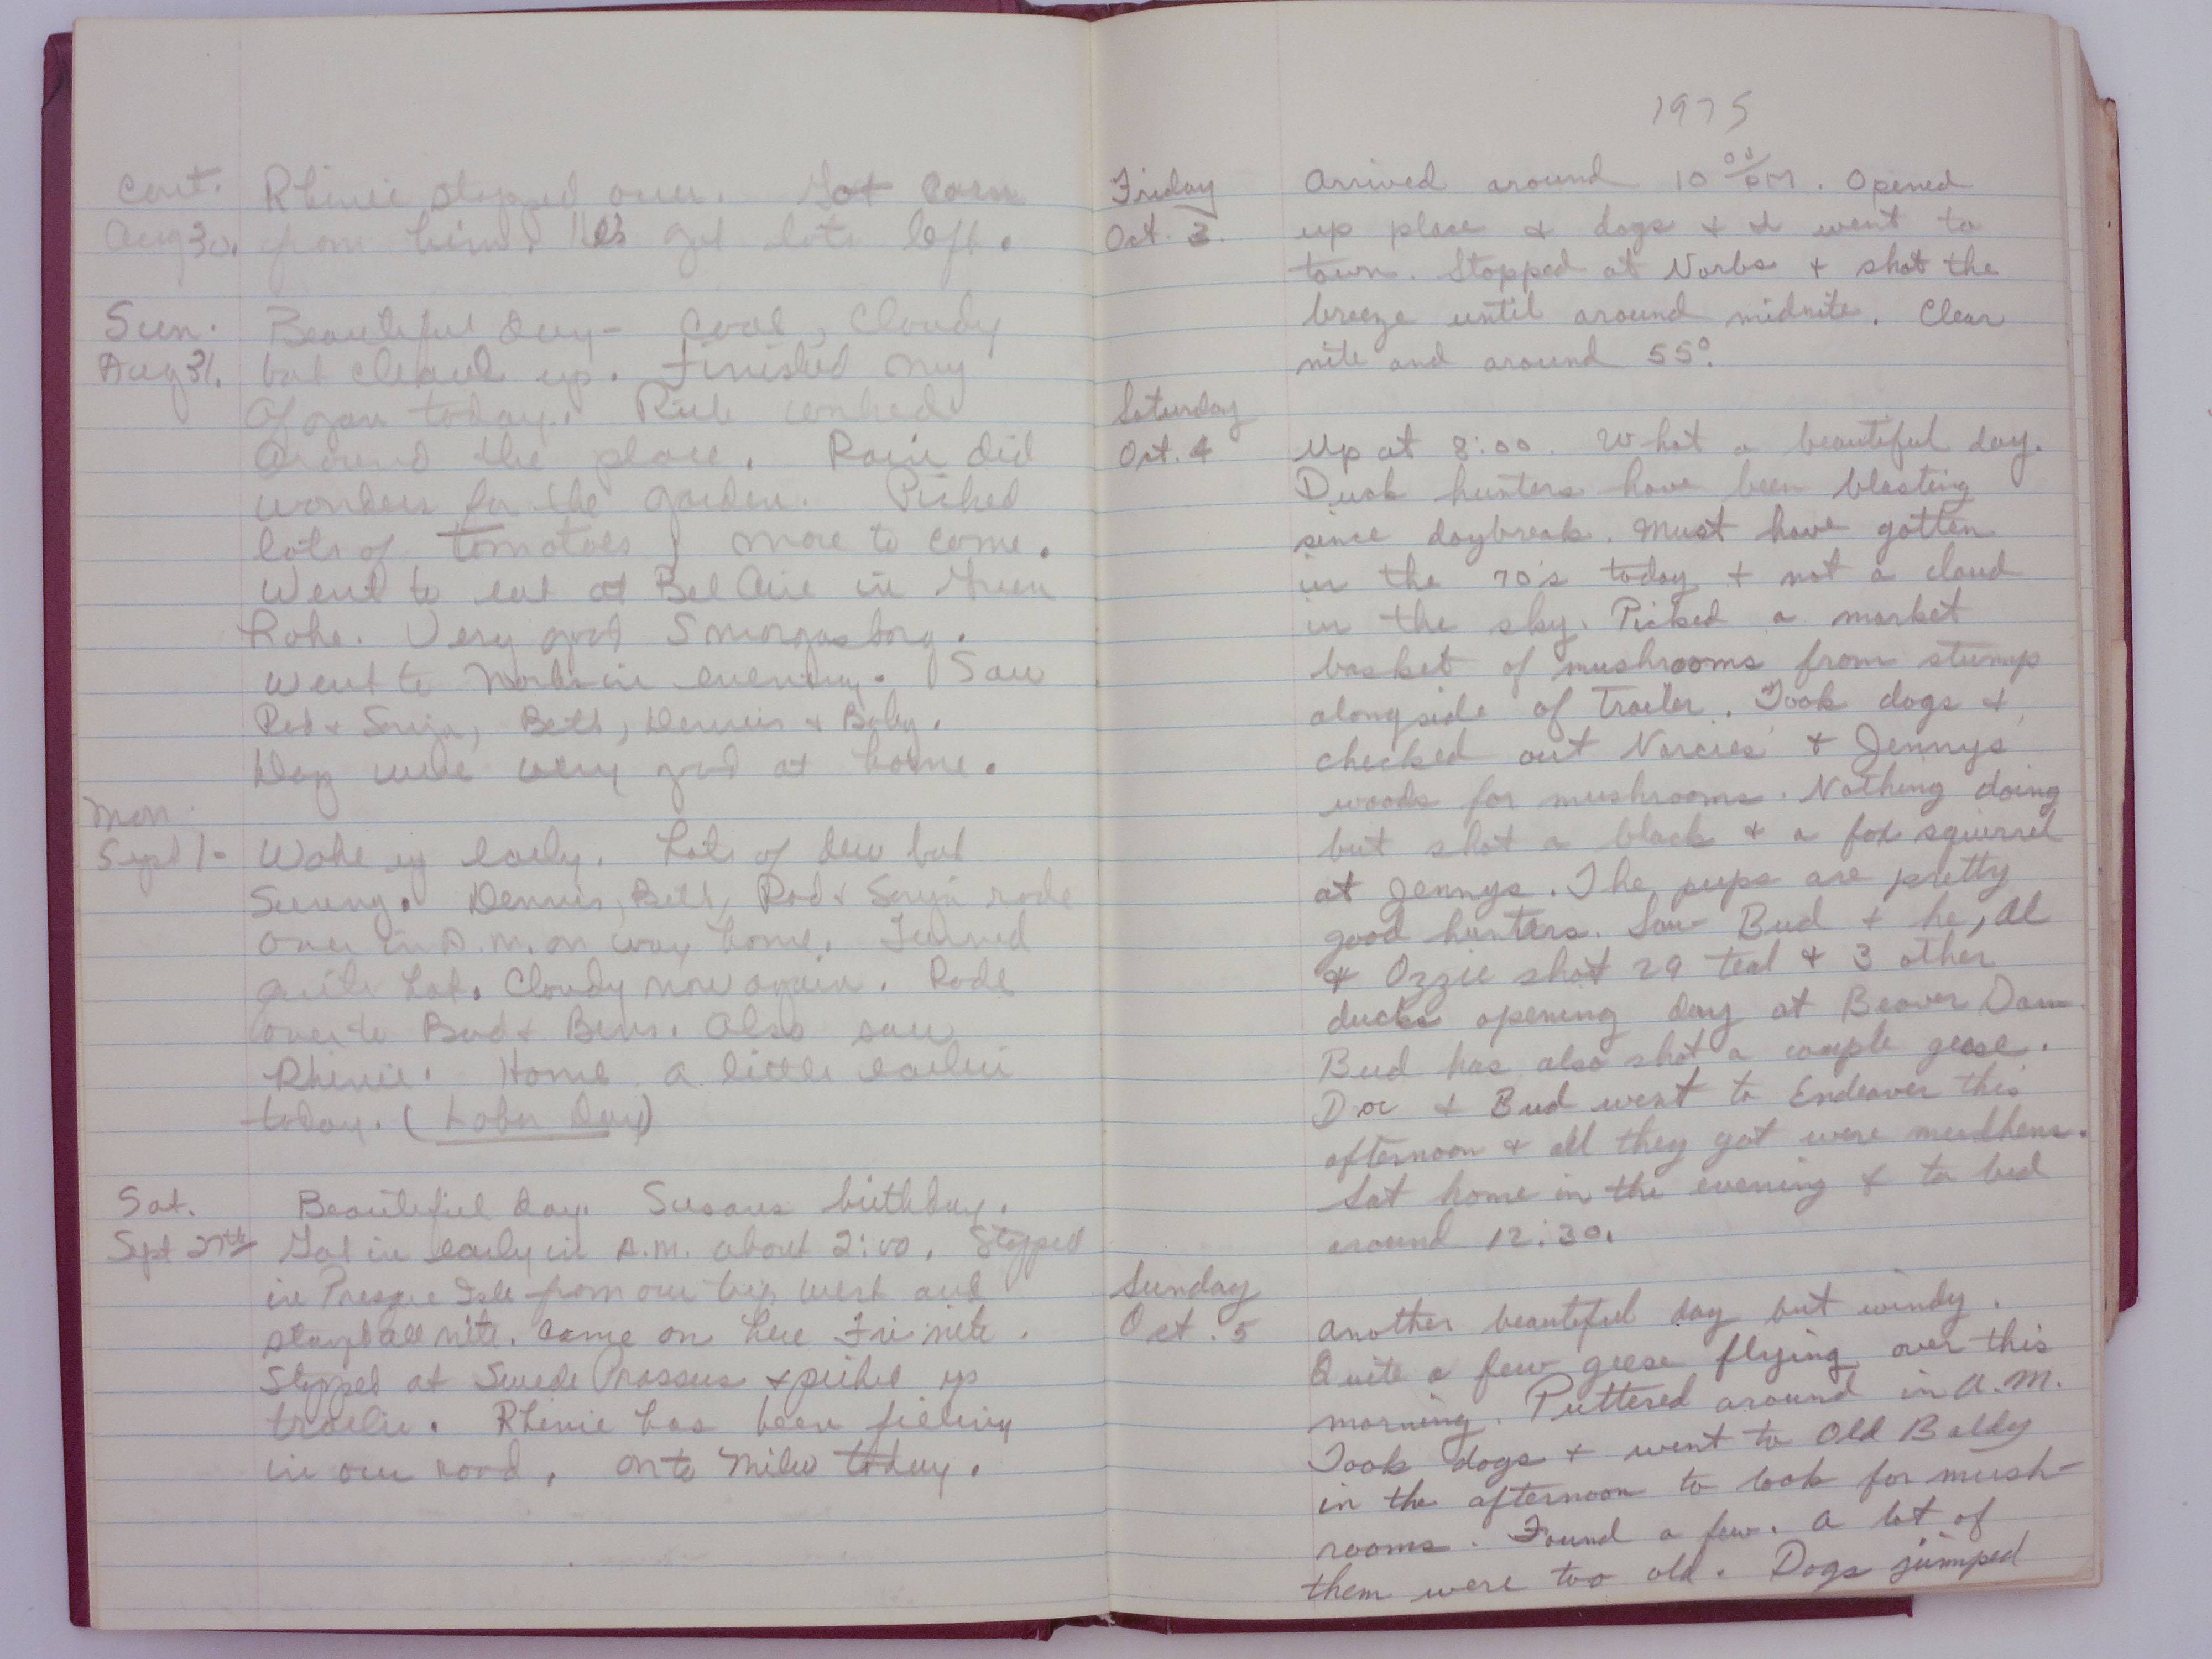 cont. Rhinie stopped over. Got corn
Aug 30. from him. He's got lots left.
Sun. Beautiful day - cool, cloudy
Aug 31. but cleared up. Finished my
afgan today. Rich worked
around the place. Rain did
wonders for the garden. Picked
lots of tomatoes & more to come.
Went to eat at Bel Aire in Green
Lake. Very good Smorgasborg.
Went to Norbs in evening. Saw
Rod & Sonja, Beth, Dennis & Baby.
Dog were very good at home.
Mon.
Sept 1. Woke up early. Lots of dew but
Sunny. Dennis, Beth, Rod & Sonja rode
over in A.M. on way home. Turned
quite hot. Cloudy now again. Rode
over to Bud & Bevs. Also saw
Rhinie. Home a little earlier
today. (Labor Day)
Sat. Beautiful day. Susans birthday.
Sept 27th Got in early in A.M. about 2:00. Stopped
in Presque Isle from our trip west and
stayed all nite. Came on here Fri nite.
Stopped at Swede & picked up
trailer. Rhinie has been
in our road. On to Milw today.
1975
Friday Arrived around 10 00/PM. Opened
Oct. 3. up place & dogs & I went to
town. Stopped at Norbs & shot the
breeze until around midnite. Clear
nite and around 55°.
Saturday
Oct. 4 Up at 8:00. What a beautiful day.
Duck hunters have been blasting
since daybreak. Must have gotten
in the 70's today & not a cloud
in the sky. Picked a market
basket of mushrooms from stump
alongside of Trailer. Took dogs &
checked out Narcies' & Jennys
woods for mushrooms. Nothing doing
but shot a black & a fox squirrel
at Jennys. The pups are pretty
good hunters. Saw Bud & he, Al
& Ozzie shot 29 teal & 3 other
ducks opening day at Beaver Dam.
Bud has also shot a couple geese.
Doc & Bud went to Endeaver this
afternoon & all they got were mudhens.
Sat home in the evening & to bed
around 12:30.
Sunday
Oct. 5 Another beautiful day but windy.
Quite a few geese flying over this
morning. Puttered around in A.M.
Took dogs & went to Old Baldy
in the afternoon to look for mush-
rooms. Found a few. A lot of
them were too old. Dogs jumped